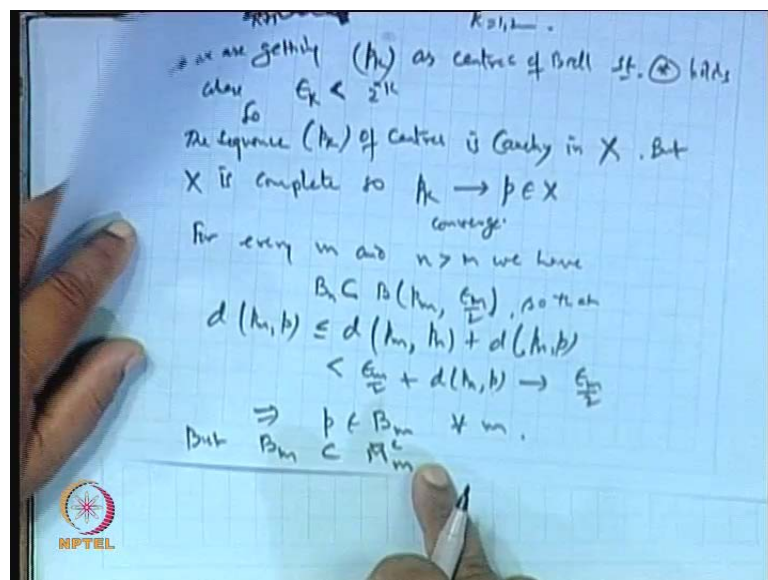 k=1,2
we are getting (pk) as centres of Ball st. (*) holds
where εk < 2^-k
So
The sequence (pk) of centres is Cauchy in X . But
X is complete so pk → p ∈ X
converge.
For every m and n > m we have
Bn ⊂ B(pm, εm/2), so that
d(pm, p) ≤ d(pm, pn) + d(pn, p)
< εm/2 + d(pn, p) → εm/2
⇒ p ∈ Bm ∀ m.
But Bm ⊂ M̄m^c
NPTEL